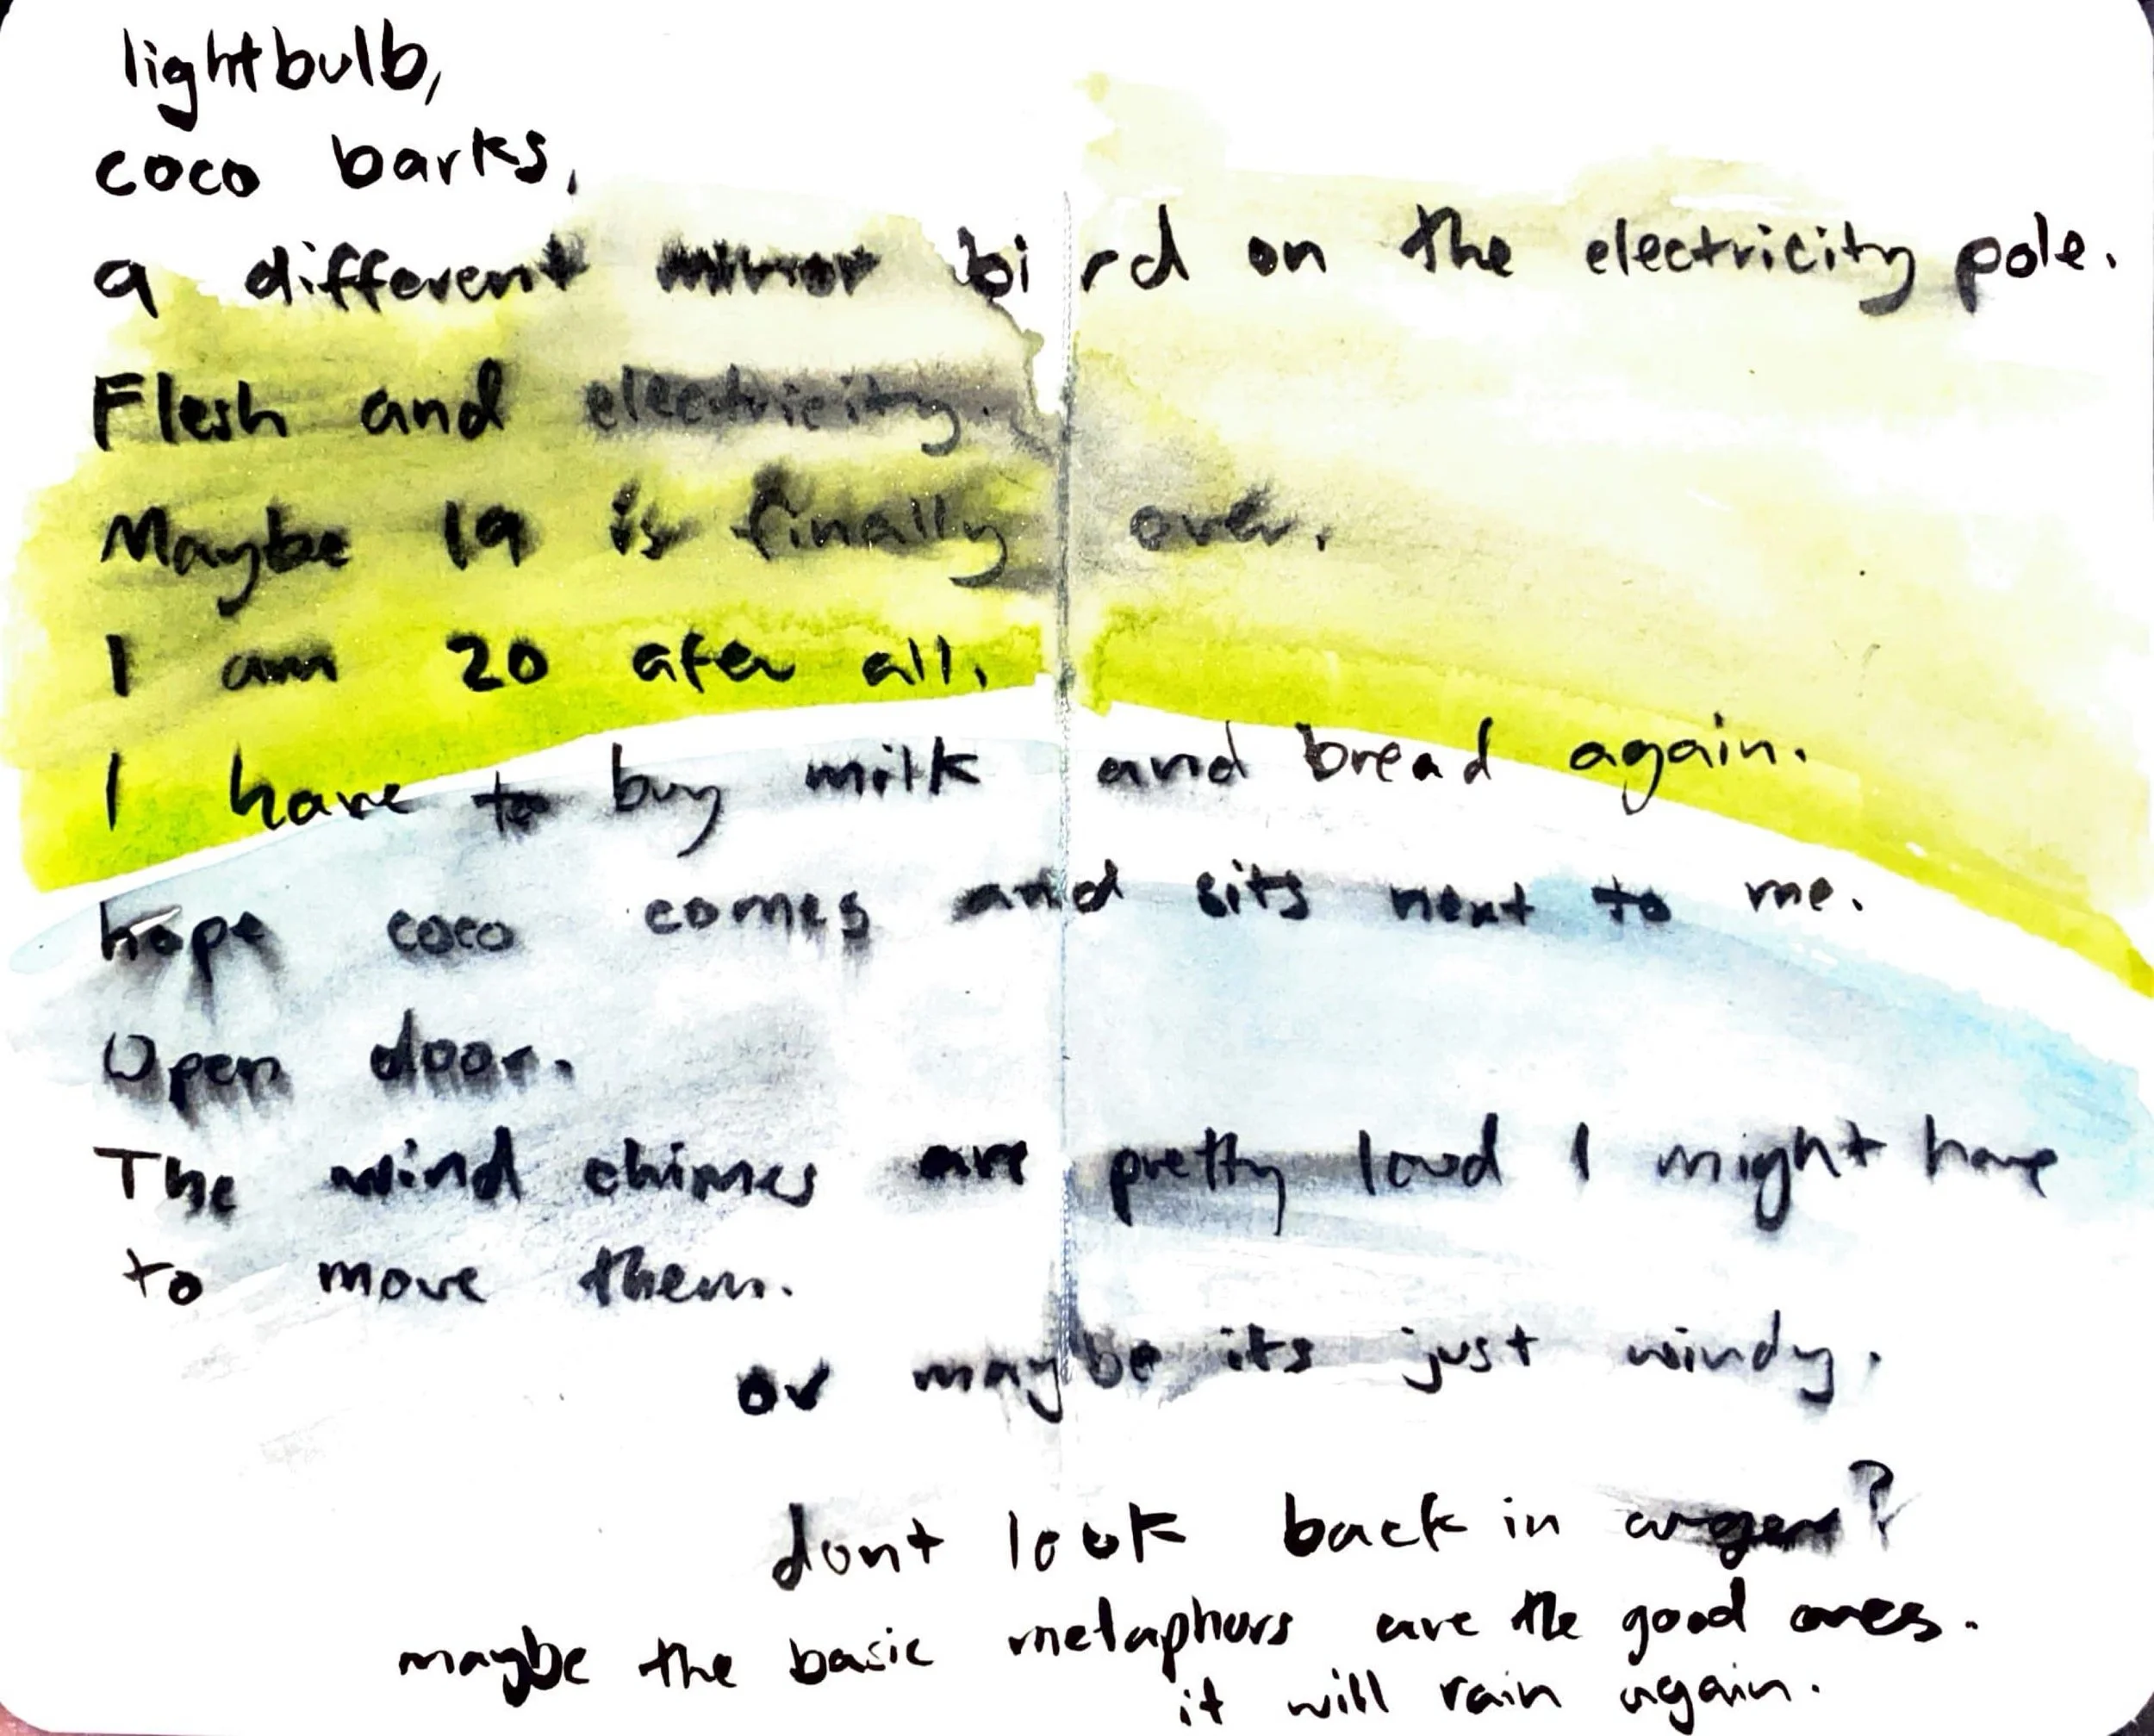 lightbulb,
coco barks,
a different minor bird on the electricity pole.
Flesh and electricity.
Maybe 19 is finally over.
I am 20 after all.
I have to buy milk and bread again.
hope coco comes and sits next to me.
Open door.
The wind chimes are pretty loud I might have
to move them.
or maybe its just windy.
dont look back in anger?
maybe the basic metaphors are the good ones.
it will rain again.